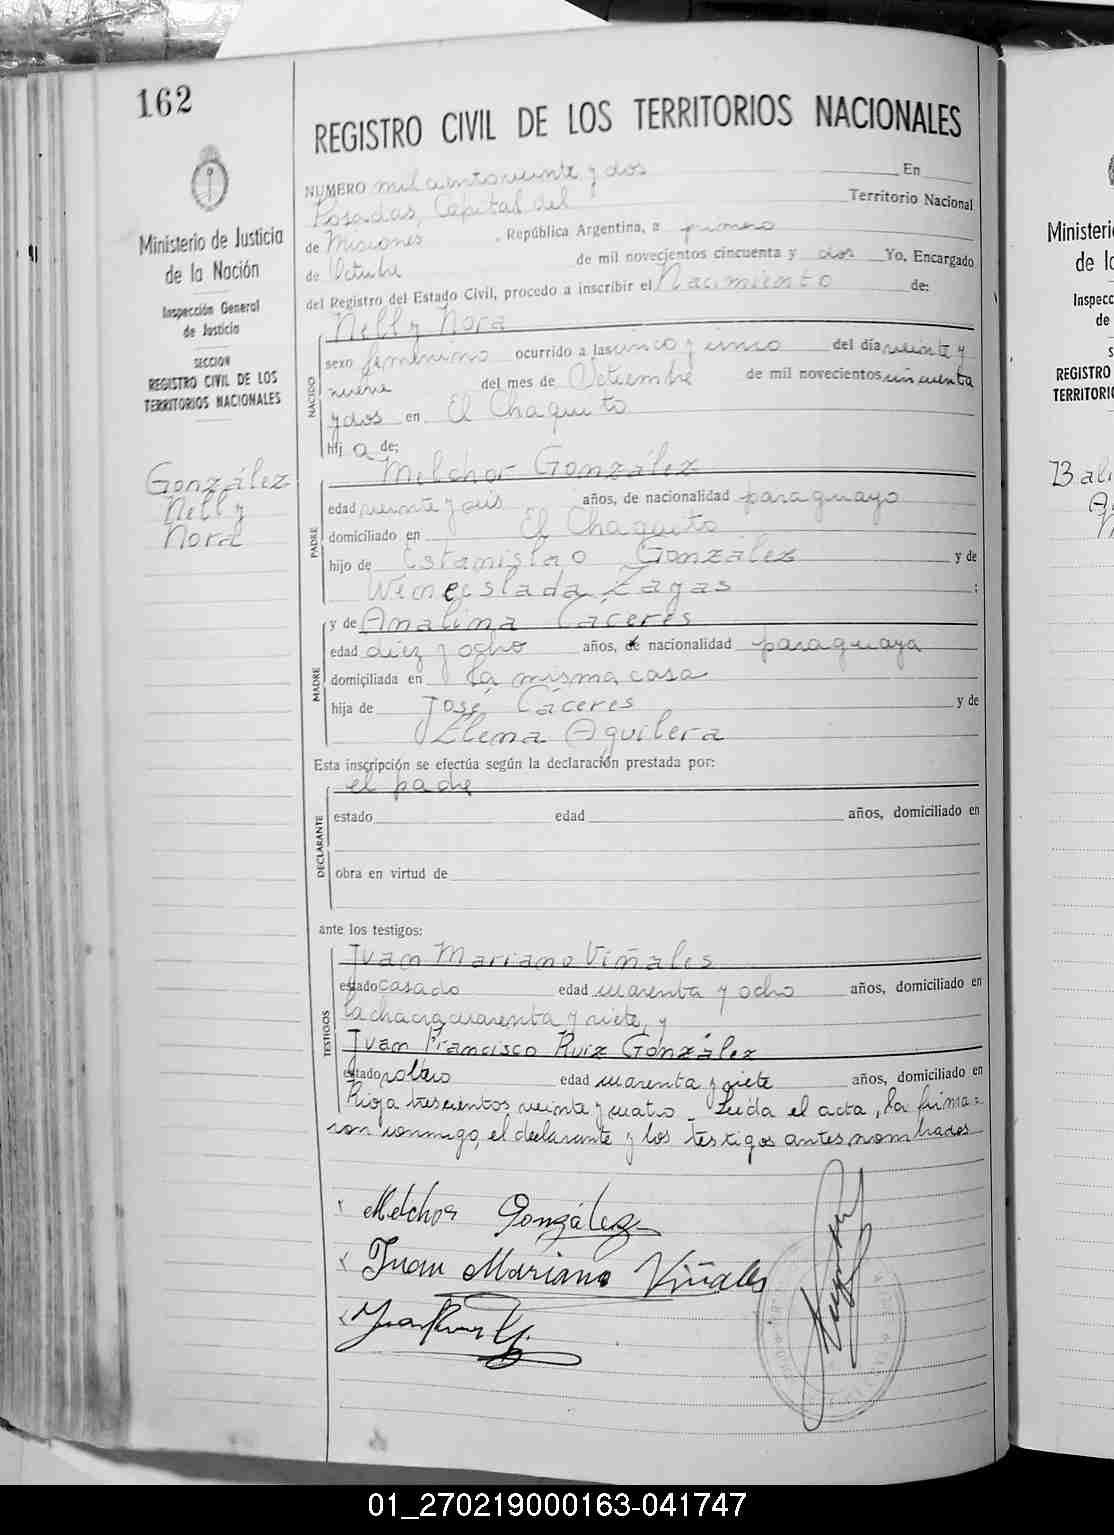 162
REGISTRO CIVIL DE LOS TERRITORIOS NACIONALES
Ministerio de Justicia
de la Nación
Inspección General
de Justicia
SECCION
REGISTRO CIVIL DE LOS
TERRITORIOS NACIONALES
González
Nelly
Nora
NUMERO mil ciento veinte y dos En
Posadas, Capital del Territorio Nacional
de Misiones, República Argentina, a primero
de Octubre de mil novecientos cincuenta y dos Yo, Encargado
del Registro del Estado Civil, procedo a inscribir el Nacimiento de:
Nelly Nora
NACIDO
sexo femenino ocurrido a las cinco y cinco del día veinte y
nueve del mes de Setiembre de mil novecientos cincuenta
y dos en El Chaquito
hij a de:
Melchor González
PADRE
edad veinte y seis años, de nacionalidad paraguayo
domiciliado en El Chaquito
hijo de Estanislao González y de
Wenceslada Zayas ;
y de Analina Cáceres
MADRE
edad diez y ocho años, de nacionalidad paraguaya
domiciliada en la misma casa
hija de José Cáceres y de
Elena Aguilera
Esta inscripción se efectúa según la declaración prestada por:
el padre
DECLARANTE
estado edad años, domiciliado en
obra en virtud de
ante los testigos:
Juan Mariano Viñales
TESTIGOS
estado casado edad cuarenta y ocho años, domiciliado en
la chacra cuarenta y siete, y
Juan Francisco Ruiz González
estado soltero edad cuarenta y siete años, domiciliado en
Rioja trescientos veinte y cuatro. Leída el acta, la firma=
ron conmigo, el declarante y los testigos antes nombrados
Melchor González
Juan Mariano Viñales
Ministeri
de la
Inspecc
de
REGISTRO
TERRITORIO
01_270219000163-041747